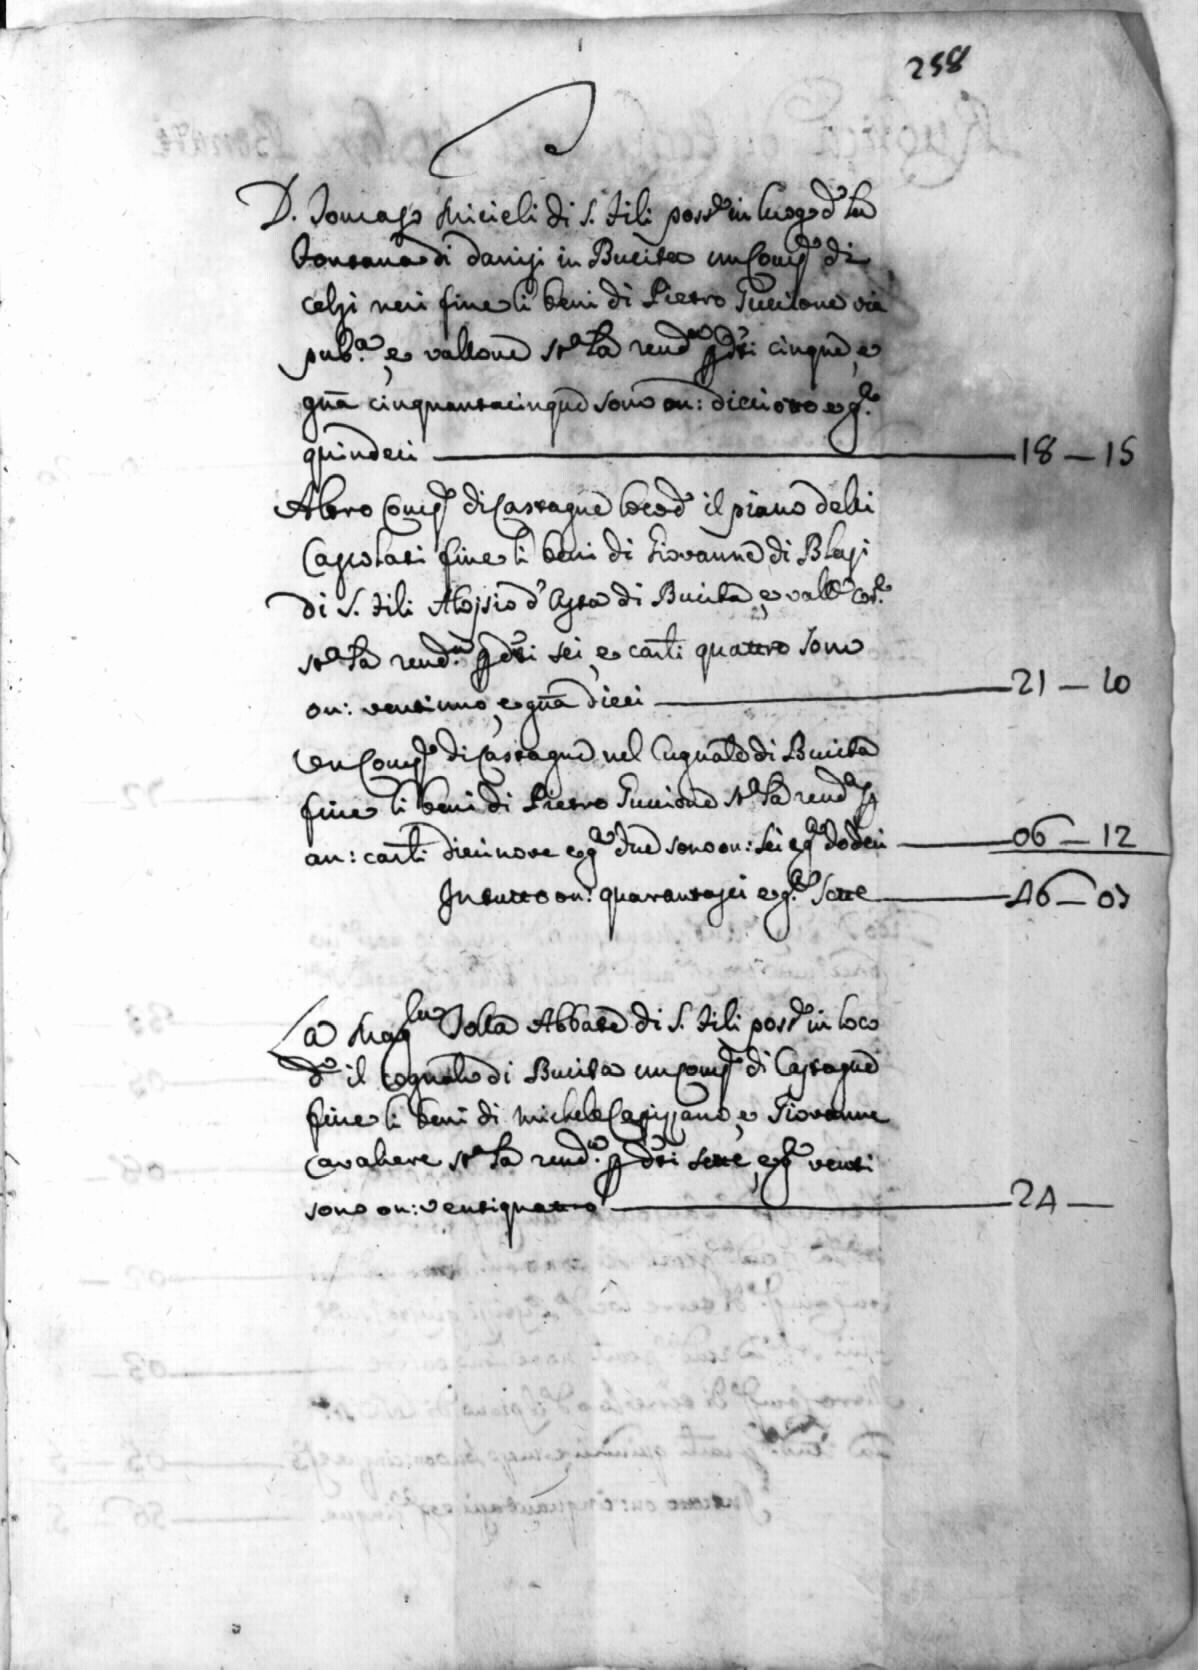 258
D. Tomaso Micieli di S. Fili poss.e in luogo d.o la
fontana di Danisi in Bucita un Comp.o di
celsi neri fine li beni di Pietro Guccione via
pub.a, e vallone st.a la rend.a di cinque, e
gña cinquantacinque sono on: diciotto e g.a
quindeci 18 — 15
Altro Comp.o di Castagne loco d.o il piano delli
fine li beni di Giovanne di Blasi
di S. Fili Aloisio d'Asta di Bucita, e vall.e
st.a la rend.a sei, e carli quattro sono
on: ventiuno, e gña dieci 21 — 10
Un Comp.o di Castagne nel Cugnale di Bucita
fine li beni di Pietro Guccione st.a la rend.a
an: carli dicinove e g.a due sono on: sei e g.a dodeci 06 — 12
In tutto on: quarantasei e g.a sette 46 — 07
La Mag.ca Abbate di S. Fili poss.e in loco
d.o il cognale di Bucita un Comp.o di Castagne
fine li beni di Michele e Giovanne
Cavaliere st.a la rend.a sette, e g.a venti
sono on: ventiquattro 24 —